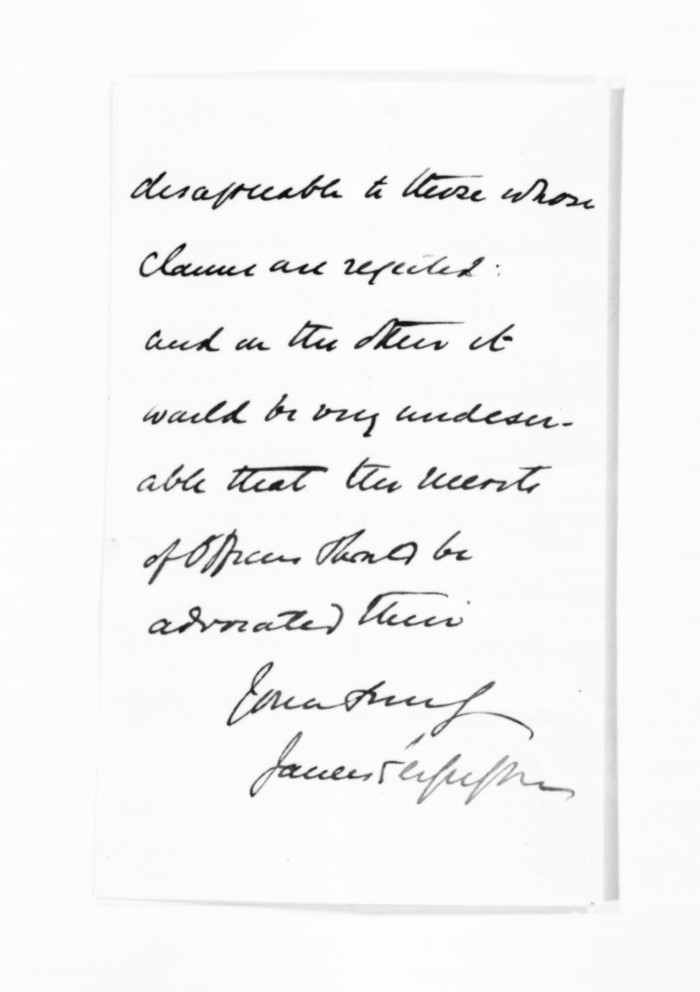 disagreeable to those whose
claims are rejected:
and on the other it
would be very undesir-
able that the merits
of Officers should be
advocated there
Yours truly
James Fergusson